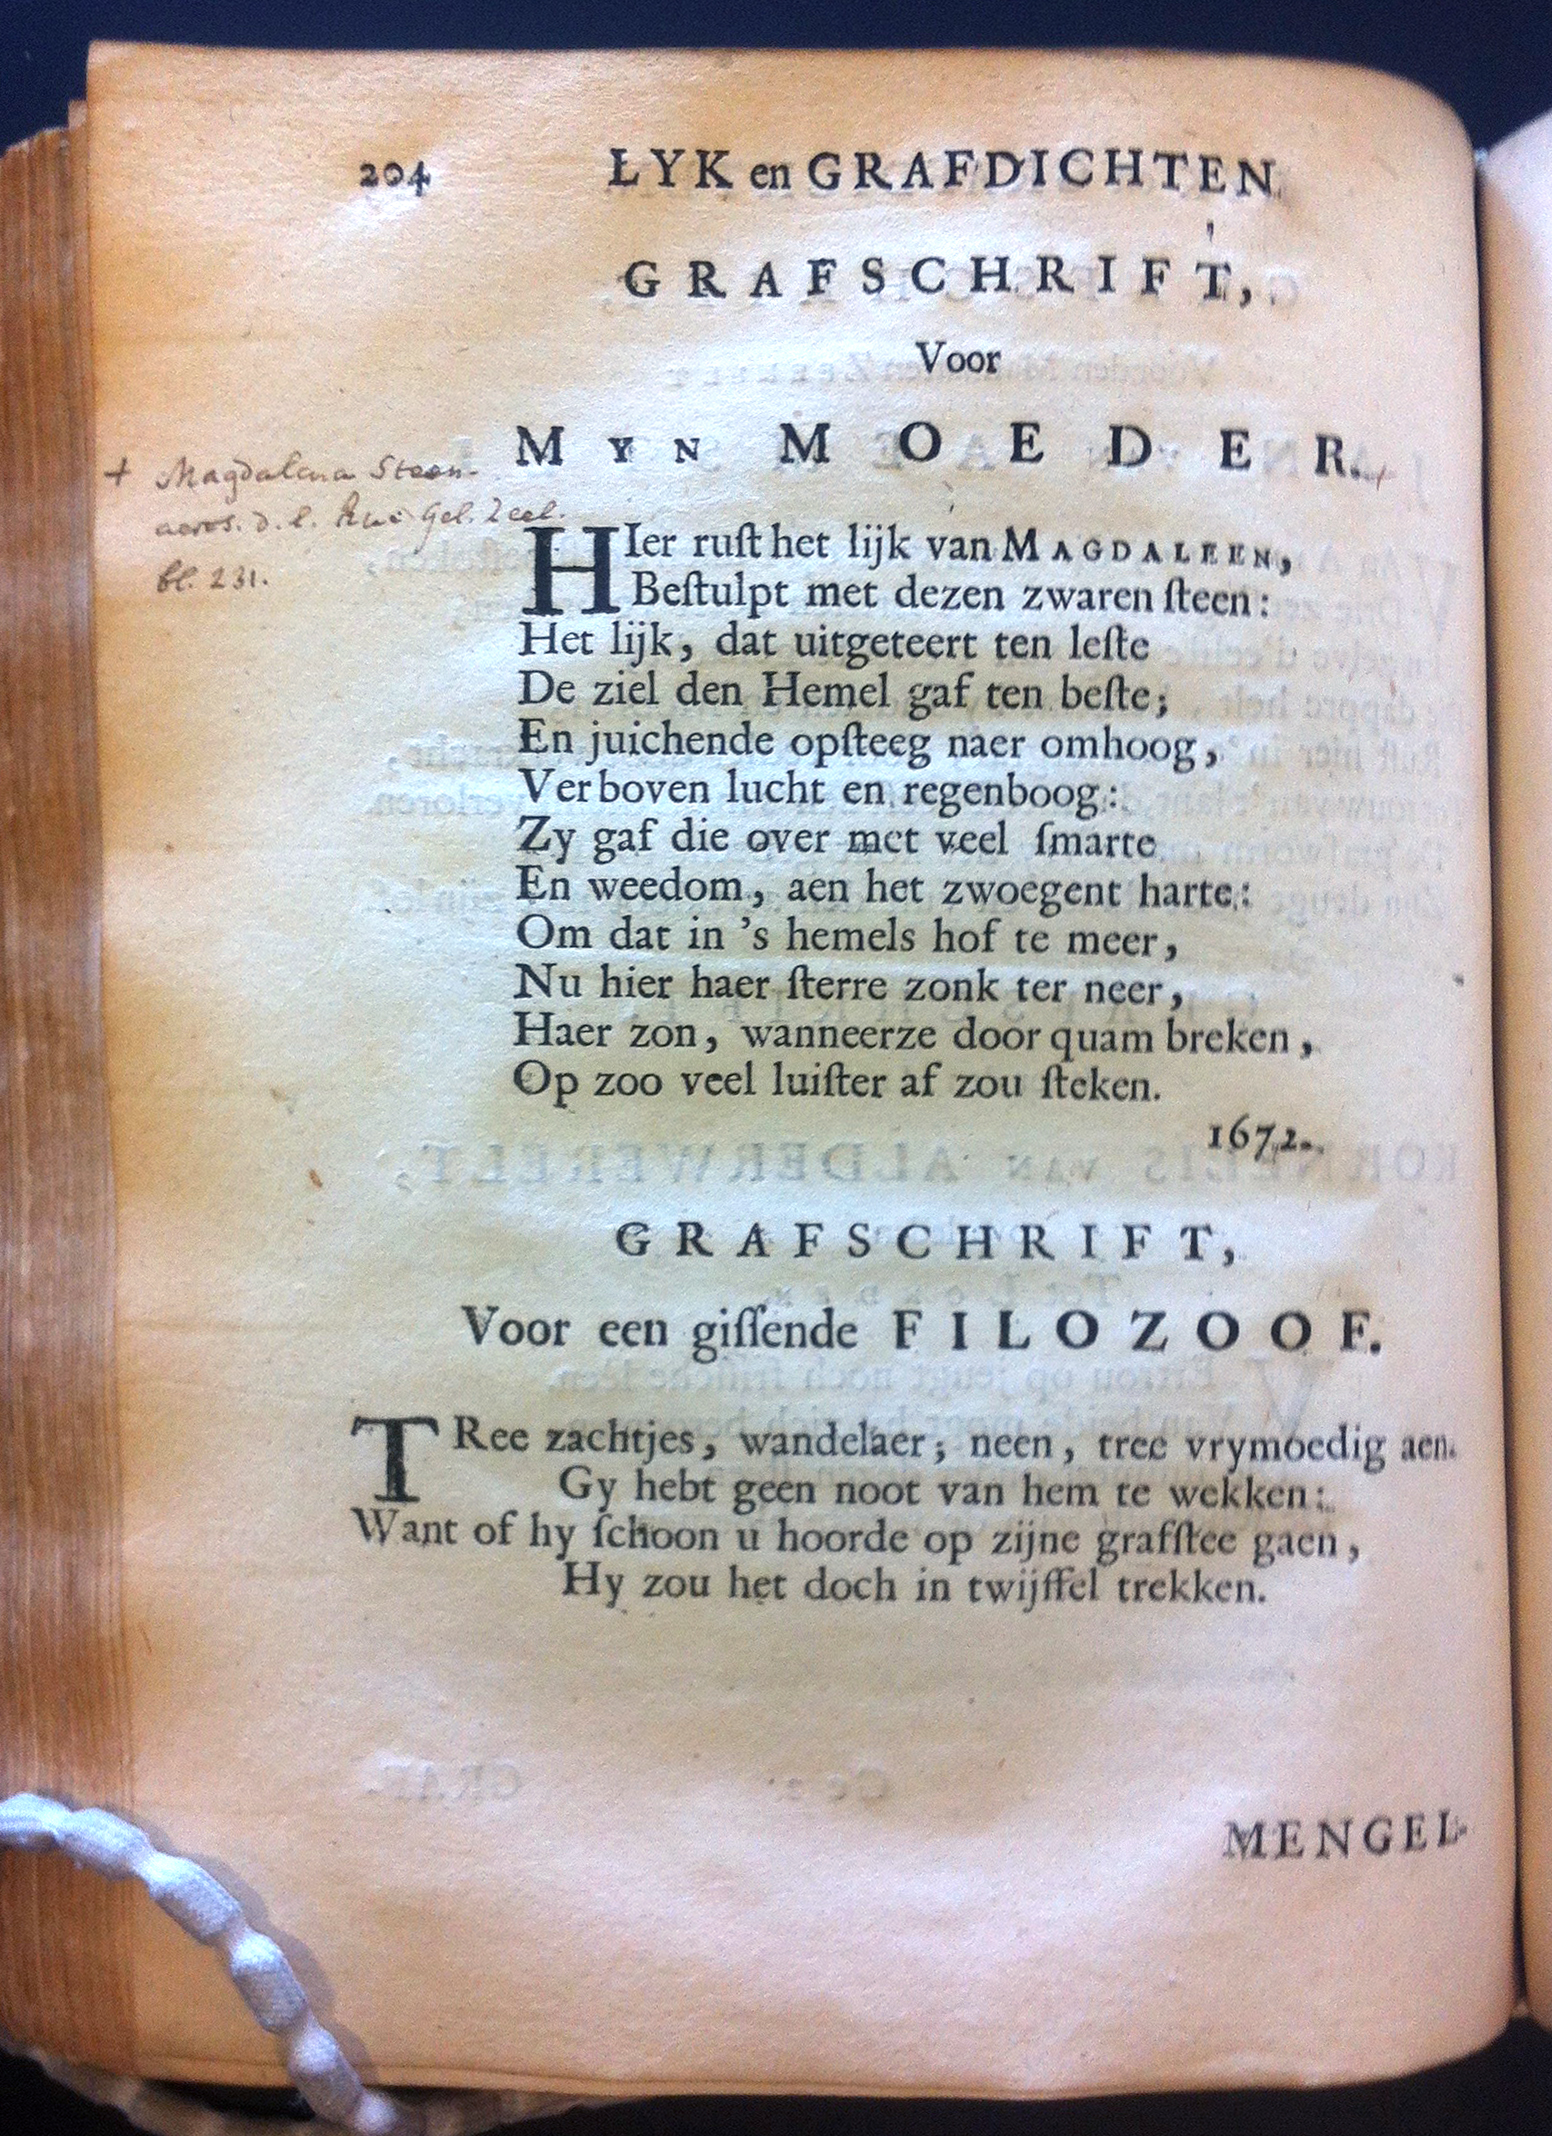 204 LYK en GRAFDICHTEN
GRAFSCHRIFT,
Voor
MYN MOEDER.
+ Magdalena Steen-
bl. 231.
HIer ruſt het lijk van MAGDALEEN,
Beſtulpt met dezen zwaren ſteen:
Het lijk, dat uitgeteert ten leſte
De ziel den Hemel gaf ten beſte;
En juichende opſteeg naer omhoog,
Verboven lucht en regenboog:
Zy gaf die over met veel ſmarte
En weedom, aen het zwoegent harte:
Om dat in 's hemels hof te meer,
Nu hier haer ſterre zonk ter neer,
Haer zon, wanneerze door quam breken,
Op zoo veel luiſter af zou ſteken.
1672.
GRAFSCHRIFT,
Voor een giſſende FILOZOOF.
TRee zachtjes, wandelaer; neen, tree vrymoedig aen.
Gy hebt geen noot van hem te wekken:
Want of hy ſchoon u hoorde op zijne grafſtee gaen,
Hy zou het doch in twijffel trekken.
MENGEL-